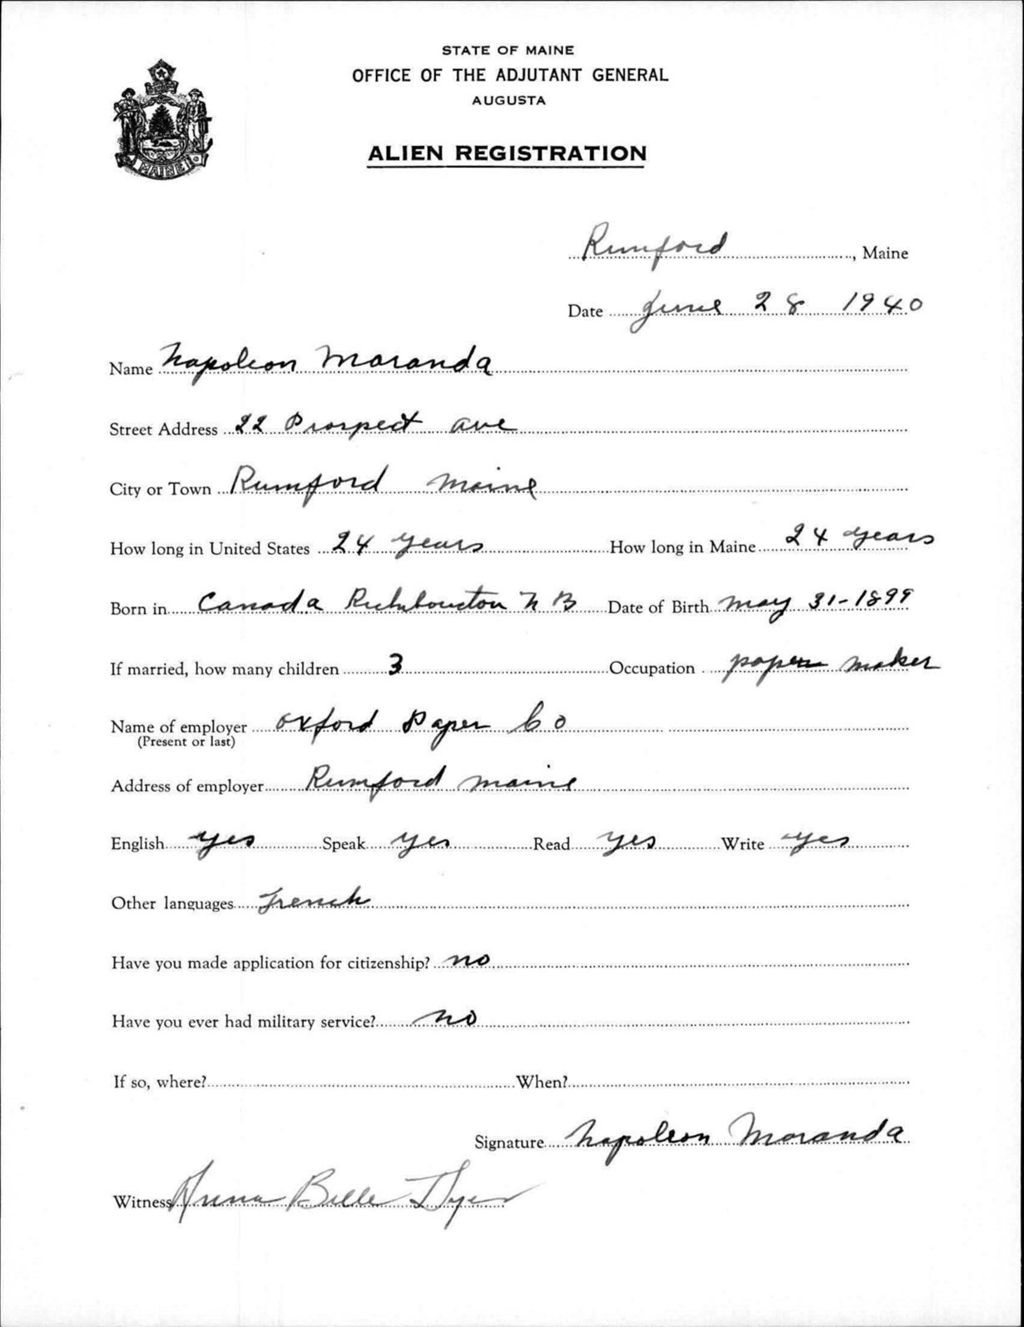 STATE OF MAINE
OFFICE OF THE ADJUTANT GENERAL
AUGUSTA
ALIEN REGISTRATION
MAINE
Rumford, Maine
Date June 28 1940
Name Napoleon Moranda
Street Address 22 Prospect ave
City or Town Rumford Maine
How long in United States 24 years How long in Maine 24 years
Born in Canada Richibouctou N B Date of Birth May 31-1899
If married, how many children 3 Occupation paper maker
Name of employer Oxford Paper Co
(Present or last)
Address of employer Rumford Maine
English yes Speak yes Read yes Write yes
Other languages French
Have you made application for citizenship? no
Have you ever had military service? no
If so, where? When?
Signature Napoleon Moranda
Witness Anna Belle Dyer